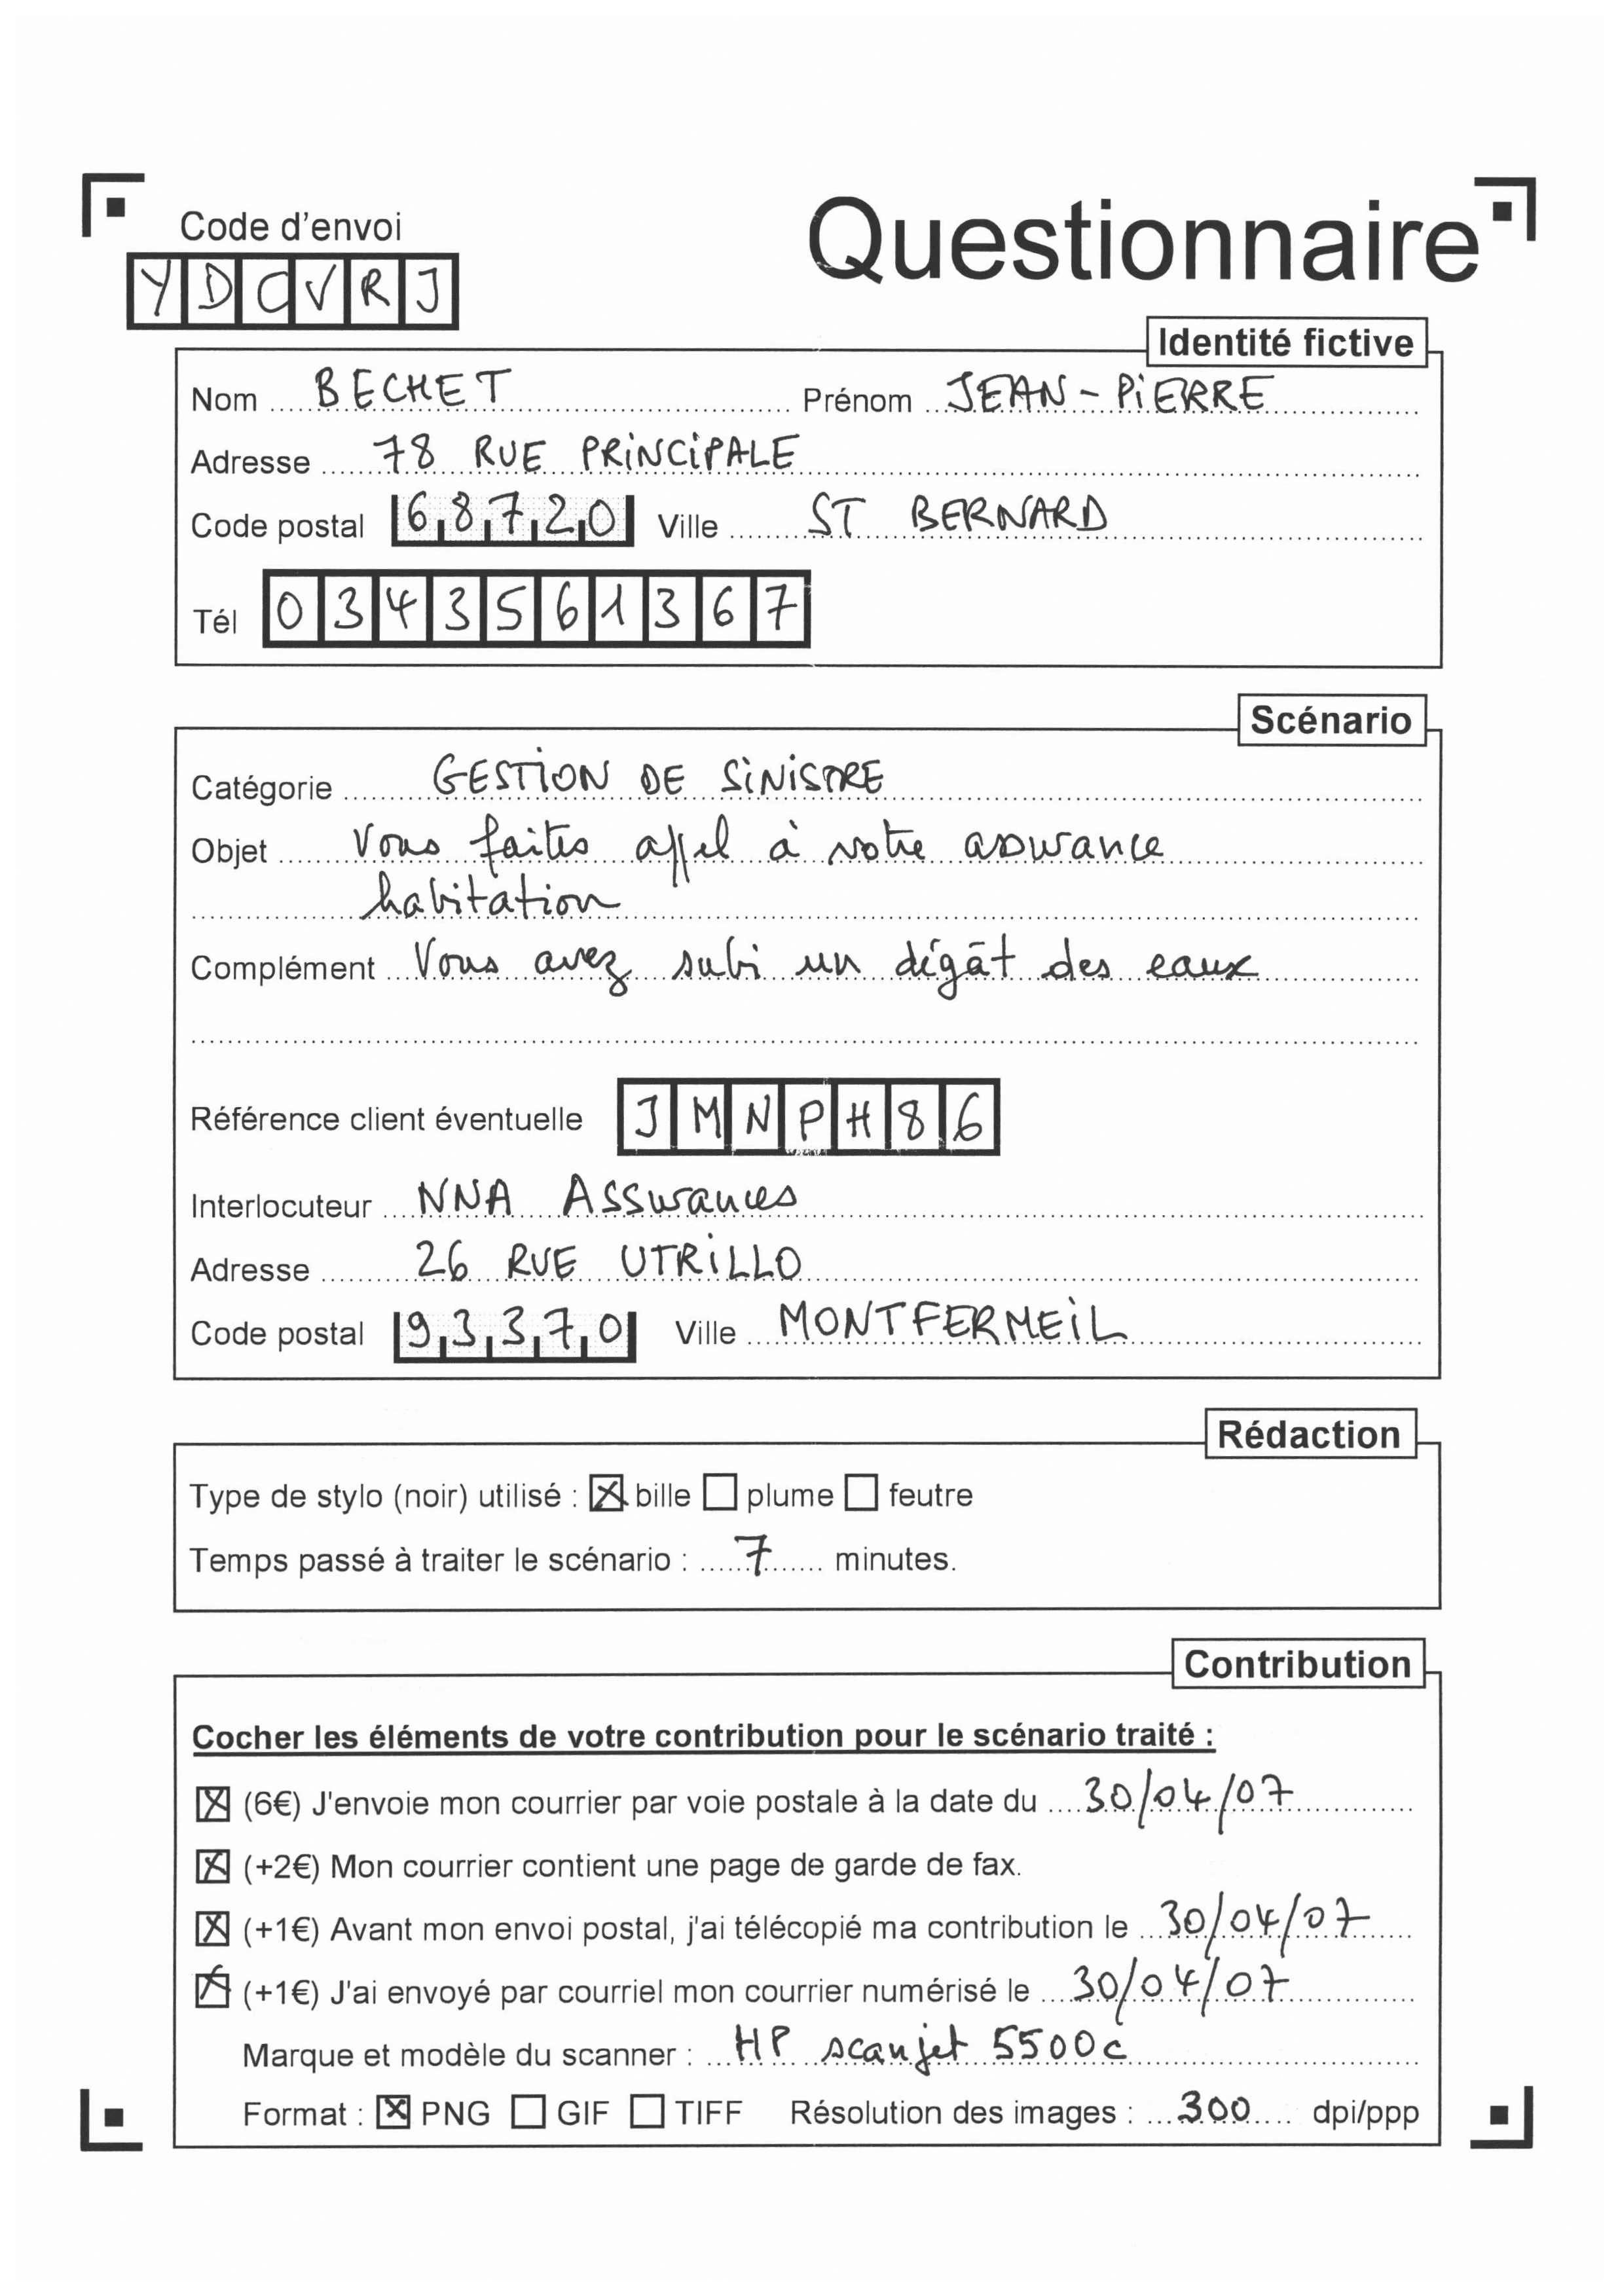 Code d'envoi
Questionnaire
YDCVRJ
Identité fictive
Nom BECHET Prénom JEAN-PiERRE
Adresse 78 RUE PRiNCiPALE
Code postal 68720 Ville ST BERNARD
Tél 0343561367
Scénario
Catégorie GESTiON DE SiNiSTRE
Objet Vous faites appel à votre assurance
habitation
Complément Vous avez subi un dégât des eaux
Référence client éventuelle JMNPH86
Interlocuteur NNA ASSurances
Adresse 26 RUE UTRiLLO
Code postal 93370 Ville MONTFERMEiL
Rédaction
Type de stylo (noir) utilisé : ☒ bille ☐ plume ☐ feutre
Temps passé à traiter le scénario : 7 minutes.
Contribution
Cocher les éléments de votre contribution pour le scénario traité :
☒ (6€) J'envoie mon courrier par voie postale à la date du 30/04/07
☒ (+2€) Mon courrier contient une page de garde de fax.
☒ (+1€) Avant mon envoi postal, j'ai télécopié ma contribution le 30/04/07
☒ (+1€) J'ai envoyé par courriel mon courrier numérisé le 30/04/07
Marque et modèle du scanner : HP scanjet 5500c
Format : ☒ PNG ☐ GIF ☐ TIFF Résolution des images : 300 dpi/ppp